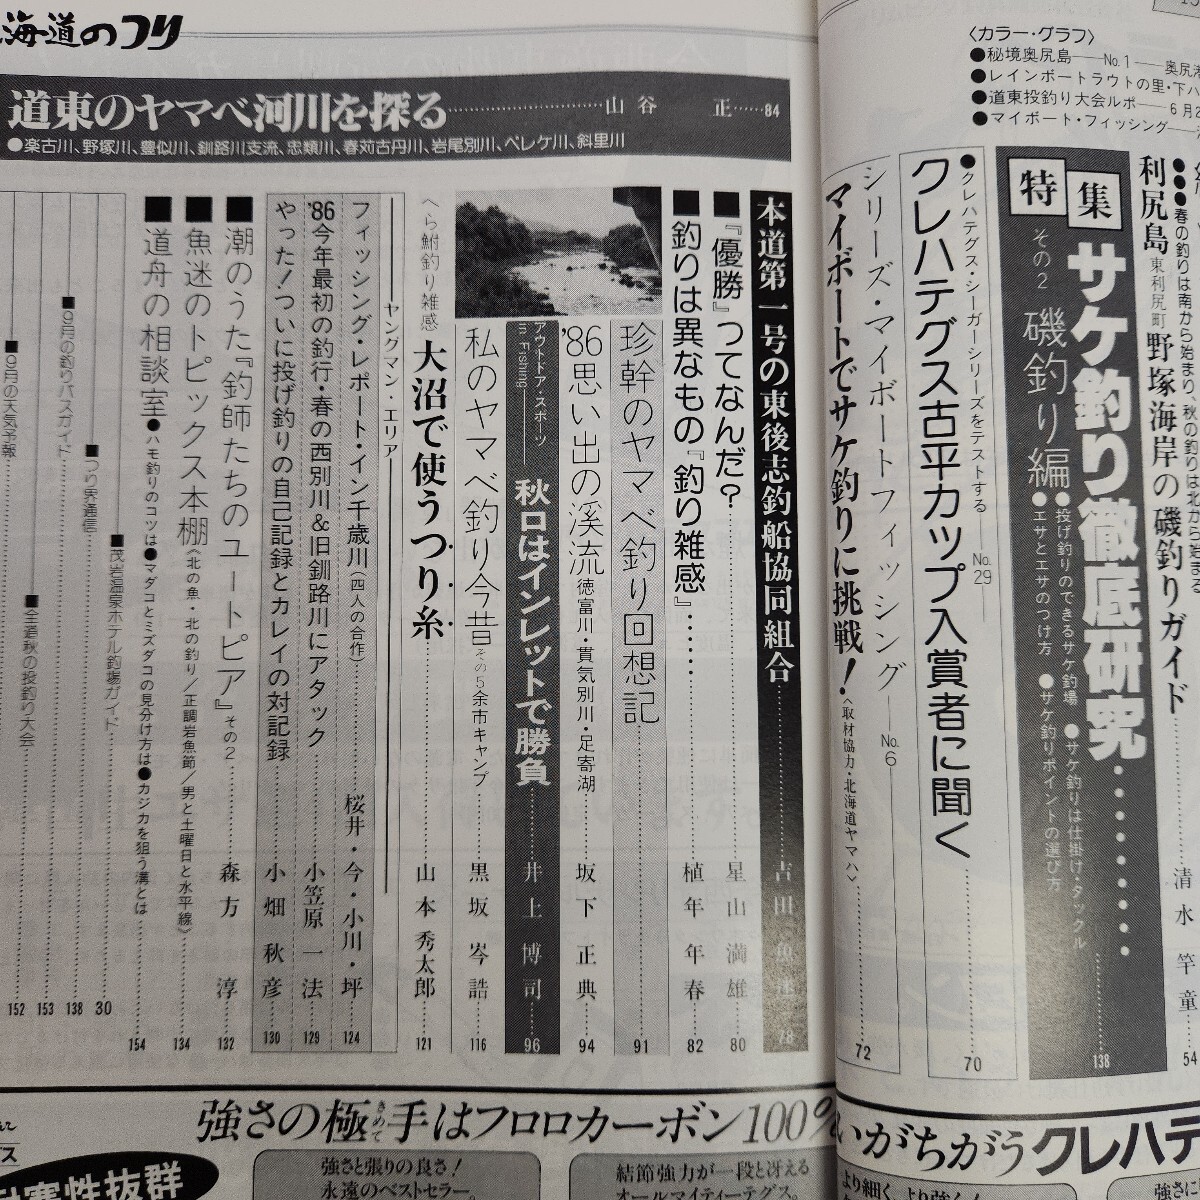 海道のつり
〈カラー・グラフ〉
●秘境奥尻島──No.1──奥尻
●レインボートラウトの里・下ハ
●道東投釣り大会ルポ──6月2
●マイボート・フィッシング──
●●●春の釣りは南から始まり、秋の釣りは北から始まる
利尻島 東利尻町 野塚海岸の磯釣りガイド……清水竿童……54
特集 サケ釣り徹底研究…………138
その2 磯釣り編
●投げ釣りのできるサケ釣場 ●サケ釣りは仕掛け・タックル
●エサとエサのつけ方 ●サケ釣りポイントの選び方
●クレハテグス・シーガーシリーズをテストする No.29
クレハテグス古平カップ入賞者に聞く……70
シリーズ・マイボートフィッシング No.6
マイボートでサケ釣りに挑戦!〈取材協力・北海道ヤマハ〉……72
道東のヤマベ河川を探る……山谷 正……84
●楽古川、野塚川、豊似川、釧路川支流、忠類川、春苅古丹川、岩尾別川、ペレケ川、斜里川
本道第一号の東後志釣船協同組合……吉田魚……78
■『優勝』ってなんだ?……星山満雄……80
■釣りは異なもの『釣り雑感』……植年年春……82
珍幹のヤマベ釣り回想記……91
'86思い出の渓流 徳富川・貫気別川・足寄湖……坂下正典……94
アウトドア・スポーツ in Fishing── 秋口はインレットで勝負……井上博司……96
私のヤマベ釣り今昔 その5 余市キャンプ……黒坂岑誥……116
へら鮒釣り雑感 大沼で使うつり糸……山本秀太郎……121
ヤングマン・エリア
フィッシング・レポート・イン千歳川(四人の合作)……桜井・今・小川・坪……124
'86今年最初の釣行・春の西別川&旧釧路川にアタック……小笠原一法……129
やった!ついに投げ釣りの自己記録とカレイの対記録……小畑秋彦……130
■潮のうた『釣師たちのユートピア』その2……森方淳……132
■魚迷のトピックス本棚《北の魚・北の釣り/正調岩魚節/男と土曜日と水平線》……134
■道舟の相談室●ハモ釣りのコツは●マダコとミズダコの見分け方は●カジカを狙う溝とは……154
■茂岩温泉ホテル釣場ガイド……30
■つり界通信……138
■9月の釣りバスガイド……
■全道秋の投釣り大会……153
■9月の天気予報……152
強さの極手はフロロカーボン100%
きめて
いがちがうクレハテ
耐寒性抜群
強さと張りの良さ!
永遠のベストセラー。
結節強力が一段と冴える
オールマイティーテグス。
より細く、より強く!
強さに